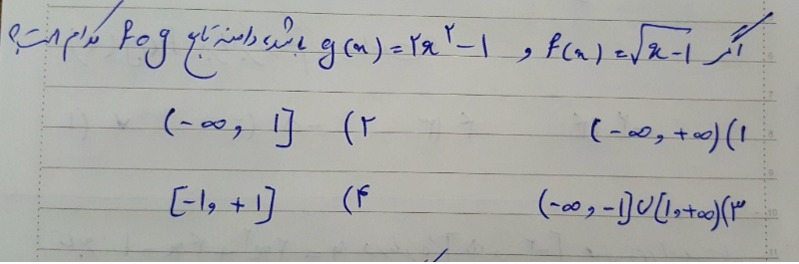 اگر f(x)=√x-1 و g(x)=۲x^۲-1 باشد، دامنه تابع fog کدام است؟
۱) (-∞, +∞) ۲) (-∞, 1]
۳) (-∞, -1]∪[1, +∞) ۴) [-1, +1]